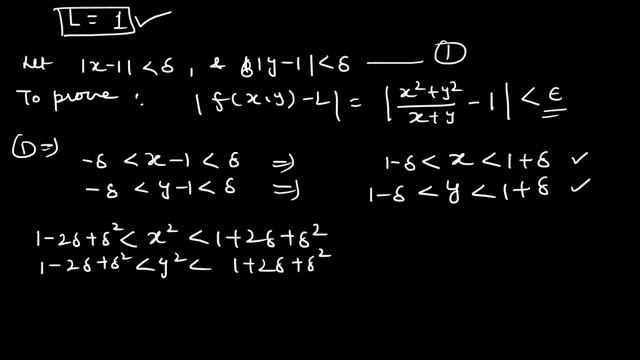 L = 1 ✓
Let |x-1| < δ , & |y-1| < δ —— ①
To prove : |f(x,y) - L| = |(x²+y²)/(x+y) - 1| < ε
① ⇒ -δ < x-1 < δ ⇒ 1-δ < x < 1+δ ✓
-δ < y-1 < δ ⇒ 1-δ < y < 1+δ ✓
1-2δ+δ² < x² < 1+2δ+δ²
1-2δ+δ² < y² < 1+2δ+δ²